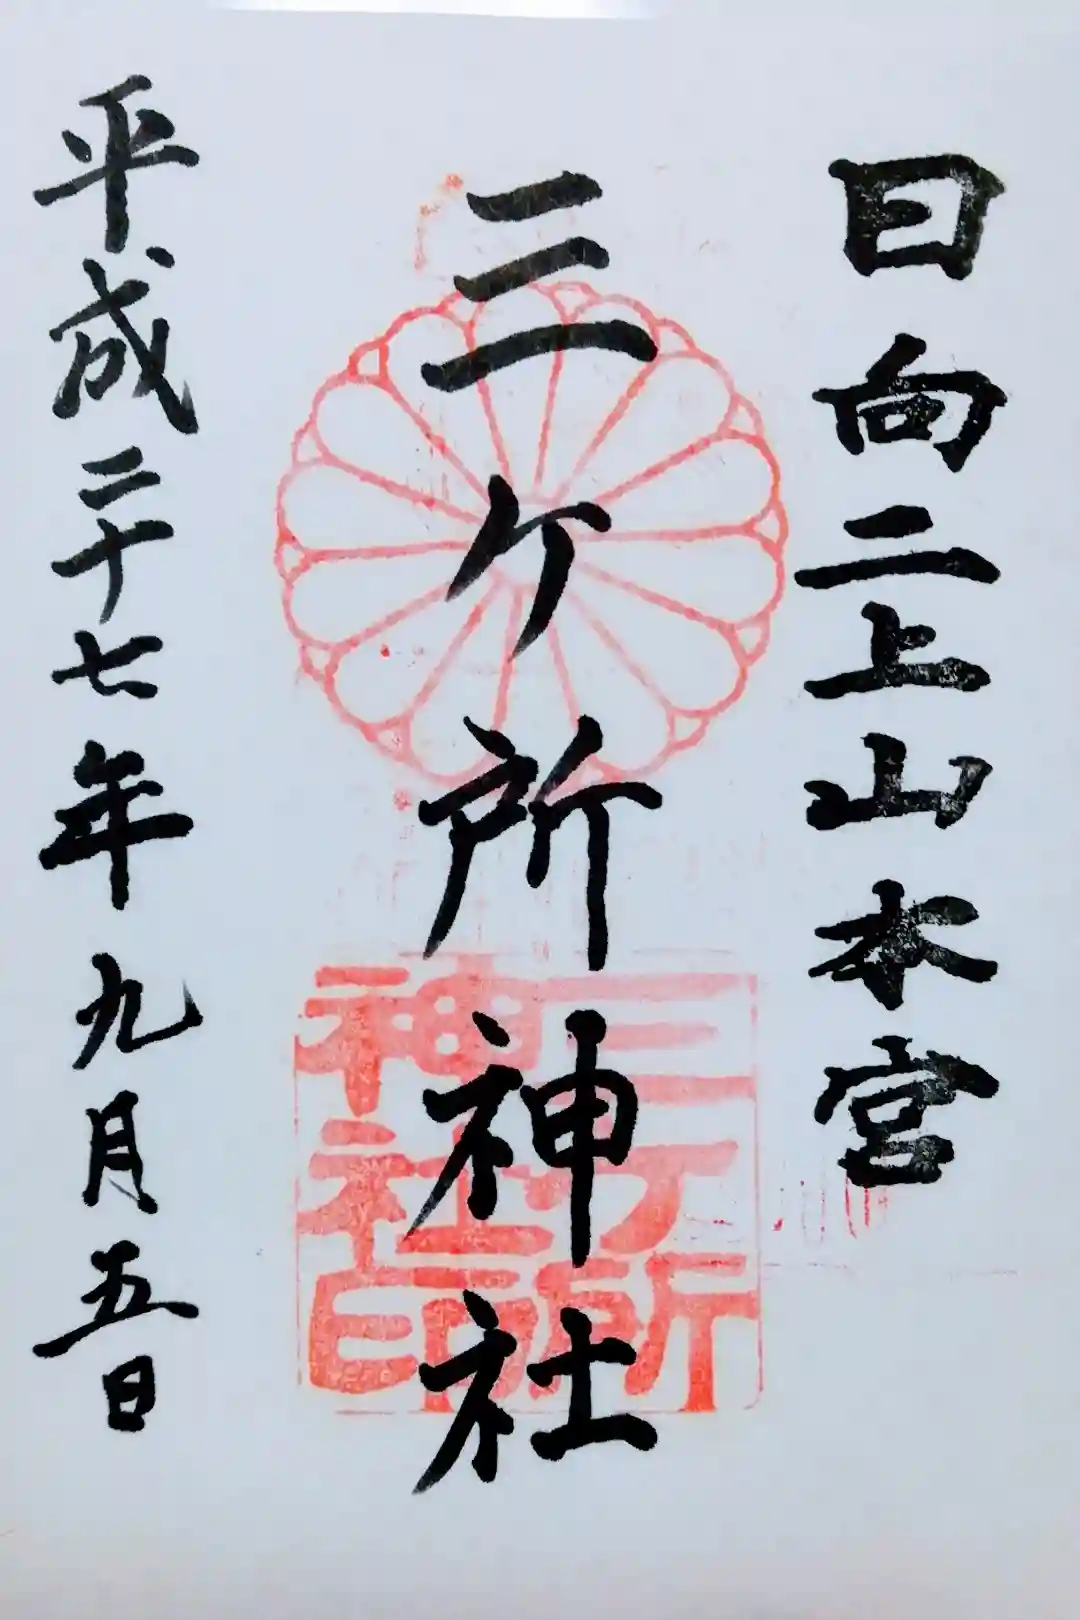 日向二上山本宮
三ケ所神社
三ケ所
神社印
平成二十七年九月五日